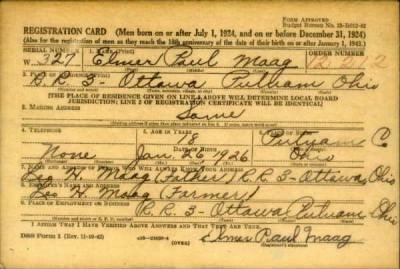 Form Approved
Budget Bureau No. 33-R012-42
REGISTRATION CARD (Men born on or after July 1, 1924, and on or before December 31, 1924)
(Also for the registration of men as they reach the 18th anniversary of the date of their birth on or after January 1, 1943.)
SERIAL NUMBER
W. 327 Elmer Paul Maag
R. R. 3- Ottawa Putnam Ohio
[THE PLACE OF RESIDENCE GIVEN ON LINE 2 ABOVE WILL DETERMINE LOCAL BOARD
JURISDICTION; LINE 2 OF REGISTRATION CERTIFICATE WILL BE IDENTICAL]
3. MAILING ADDRESS
Same
4. TELEPHONE
5. AGE IN YEARS
Putnam C
None
DATE OF BIRTH
Jan. 26 1926
Ohio
Leo H. Maag (Father) R.R. 3-Ottawa Ohio
8. EMPLOYER'S NAME AND ADDRESS
Leo H. Maag (Farmer)
9. PLACE OF EMPLOYMENT OR BUSINESS
R. R. 3- Ottawa Putnam Ohio
I AFFIRM THAT I HAVE VERIFIED ABOVE ANSWERS AND THAT THEY ARE TRUE.
DSS Form 1
(OVER)
Elmer Paul Maag